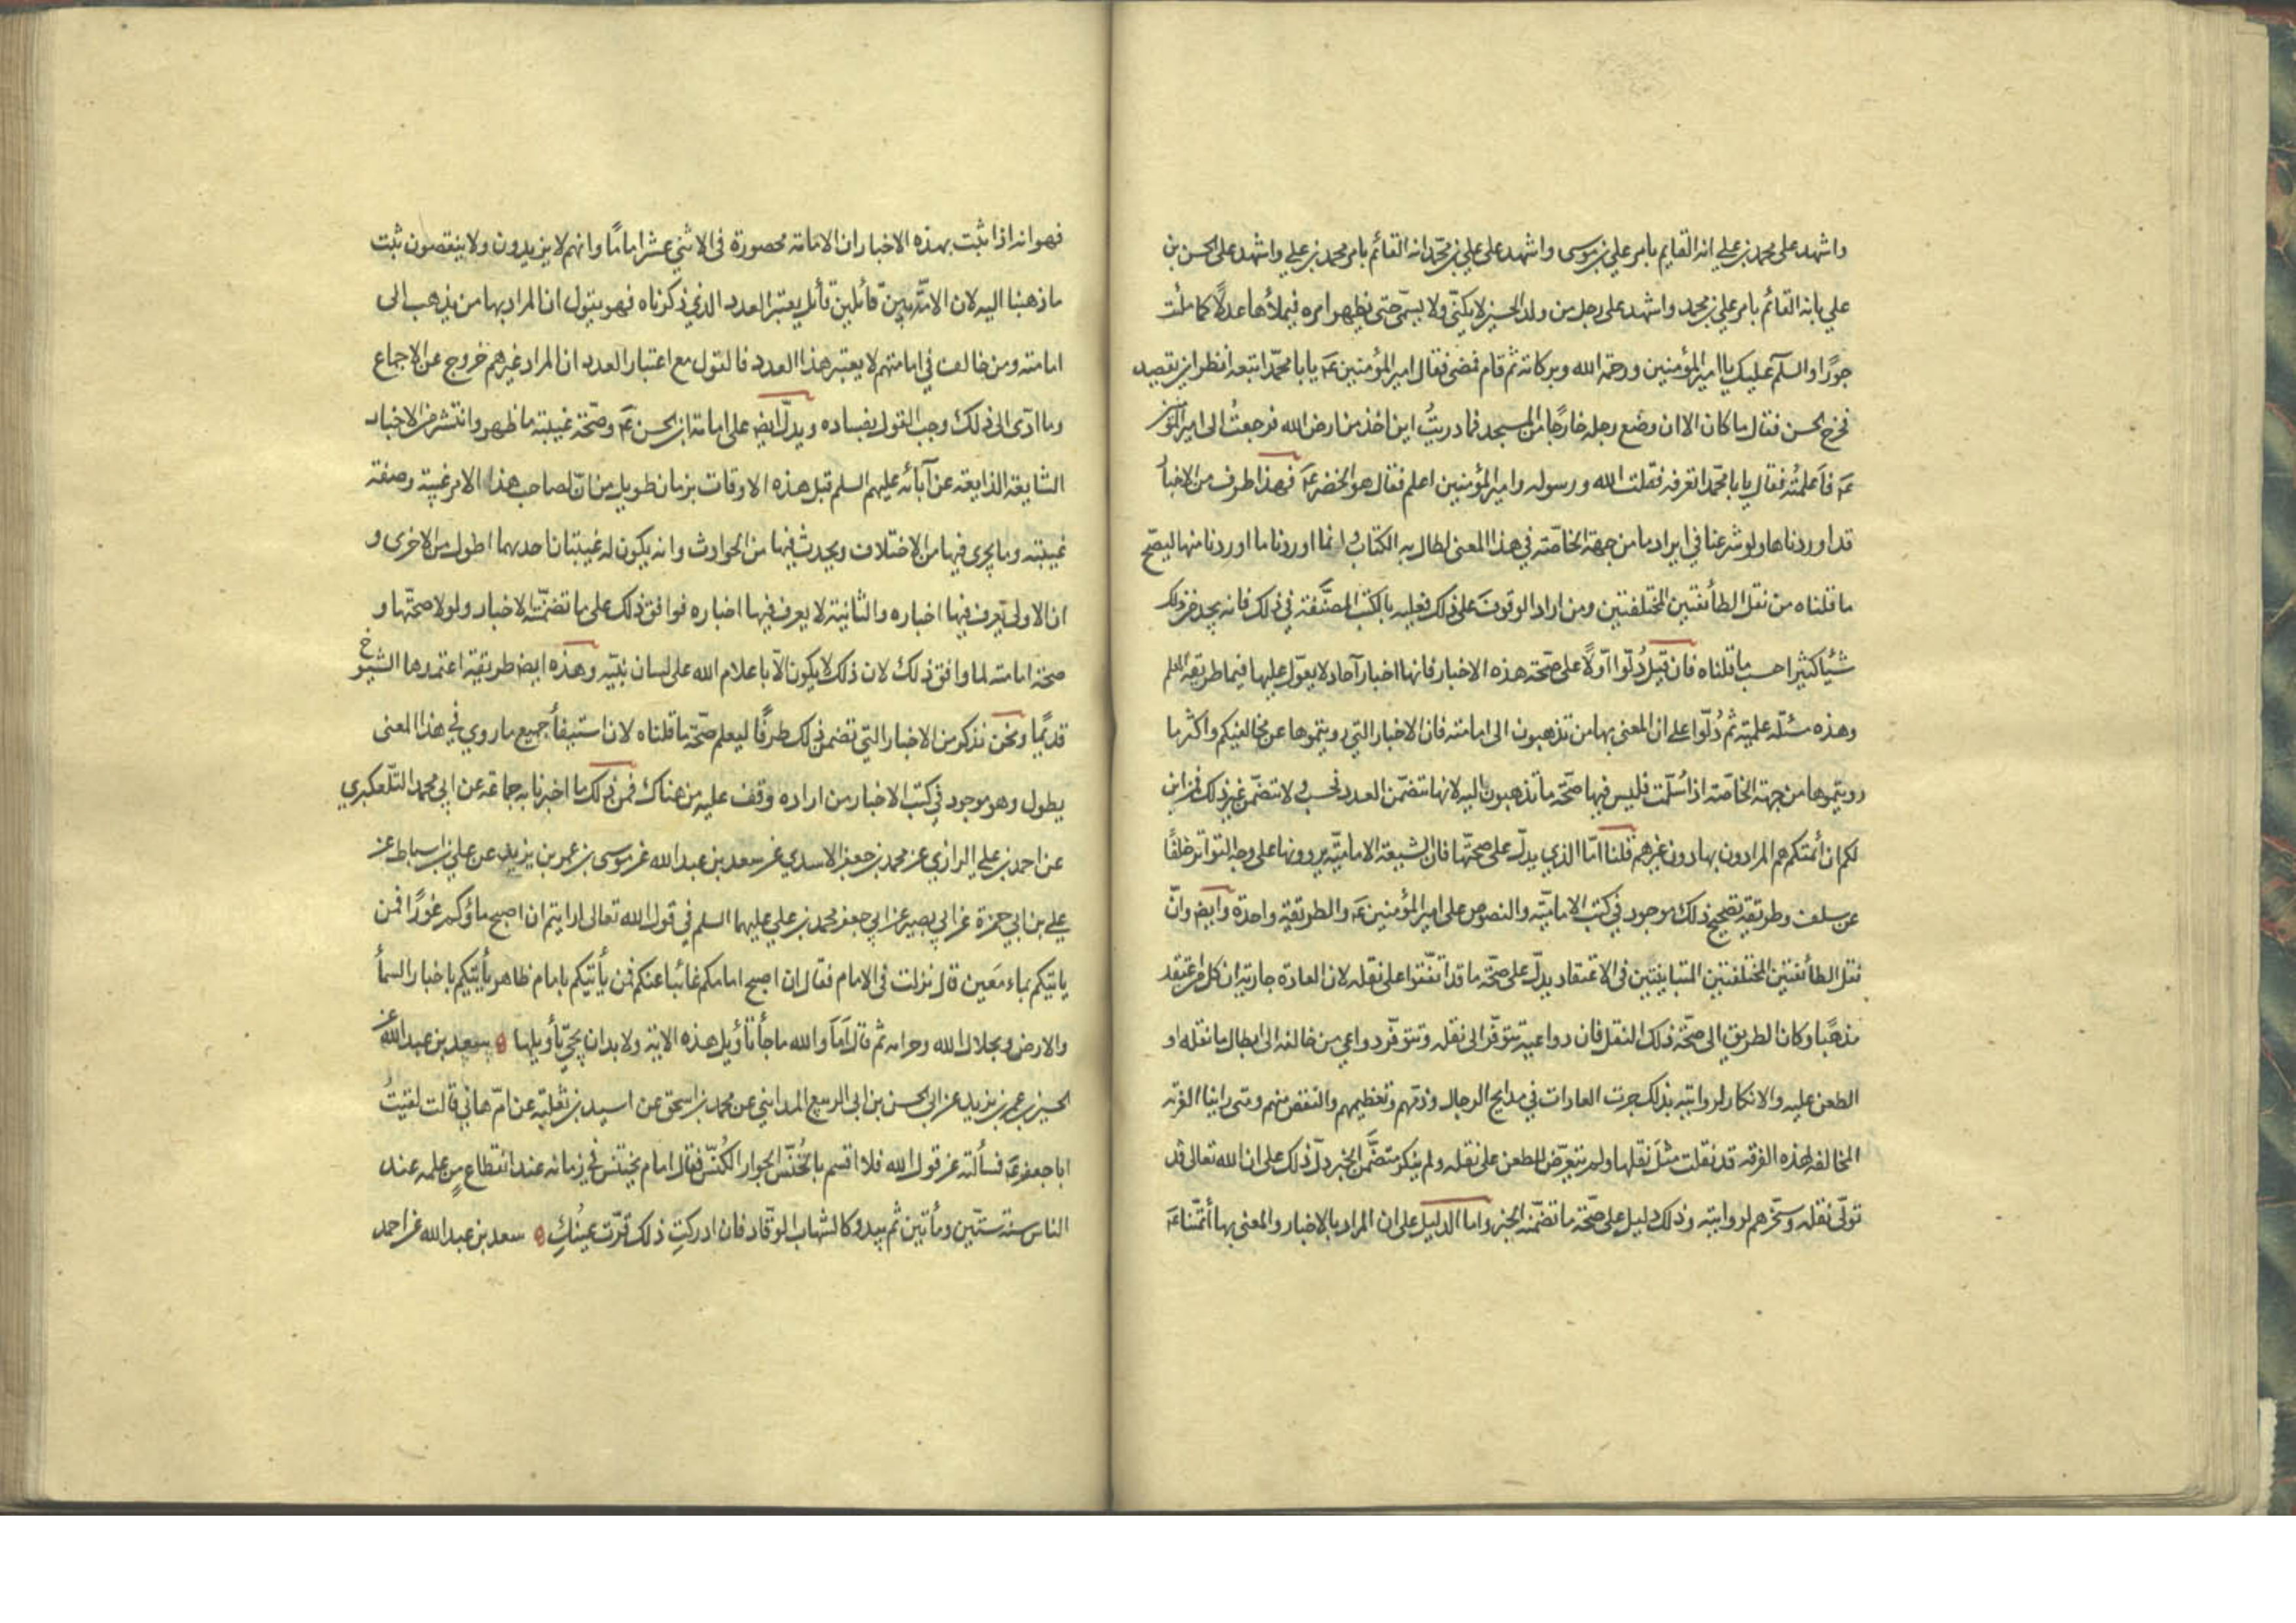 واشهد على محمد بن علي انه القايم بامر علي بن موسى واشهد على علي بن محمد انه القائم بامر محمد بن علي واشهد على الحسن بن
علي بانه القائم بامر علي بن محمد واشهد على رجل من ولد الحسين لا يكنّى ولا يسمّى حتى يظهر امره فيملأها عدلًا كما ملئت
جورًا والسلم عليك يا امير المؤمنين ورحمة الله وبركاته ثم قام فمضى فقال امير المؤمنين عَ يا با محمّد اتبعه انظر اين يقصد
فخرج الحسن فقال ما كان الا ان وضع رجله خارجًا من المسجد فما دريتُ اين اخذ من ارض الله فرجعتُ الى امير المؤمنين
عَ فاَعلمتُه فقال يا با محمّد اتعرفه فقلت الله ورسوله وامير المؤمنين اعلم فقال هو الخضر عَ فهذا طرف من الاخبار
قد اوردناها ولو شرعنا في ايراد ما من جهة الخاصّة في هذا المعنى لطال به الكتاب وانما اوردنا ما اوردنا منها ليصحّ
ما قلناه من نقل الطائفتين المختلفتين ومن اراد الوقوف على ذلك فعليه بالكتب المصنَّفة في ذلك فانه يجد من ذلك
شيًا كثيرا حسب ما قلناه فان قيل دُلّوا اوّلًا على صحّة هذه الاخبار فانها اخبار آحاد لا يعوّل عليها فيما طريقه العلم
وهذه مسئلة علميّة ثم دُلّوا على ان المعنى بها من تذهبون الى امامته فان الاخبار التي رويتموها عن مخالفيكم واكثر ما
رويتموها من جهة الخاصّة اذا سُلّمت فليس فيها صحّة ما تذهبون اليه لانها تتضمّن العدد فحسب ولا تتضمّن غير ذلك فمن اين
لكم ان ائمتكم هم المرادون بها دون غيرهم قلنا امّا الذي يدلّ على صحتّها فان الشيعة الاماميّة يروونها على وجه التواتر خلفًا
عن سلف وطريقة تصحيح ذلك موجود في كتب الاماميّة والنصوص على امير المؤمنين عَ والطريقة واحدة وايض فانّ
نقل الطائفتين المختلفتين المتباينتين في الاعتقاد يدلّ على صحّة ما قد اتّفقوا على نقله لان العادة جارية ان كل من اعتقد
مذهبًا وكان الطريق الى صحّة ذلك النقل فان دواعيه تتوفّر الى نقله وتتوفّر دواعي من خالفه الى ابطال ما نقله او
الطعن عليه والانكار لروايته بذلك جرت العادات في مدايح الرجال وذمّهم وتعظيمهم والنقص منهم ومتى راينا الفرقة
المخالفة لهذه الفرقة قد نقلت مثلَ نقلها ولم تتعرّض للطعن على نقله ولم ينكر متضَّمن الخبر دلّ ذلك على ان الله تعالى قد
تولّى نقله وسخّرهم لروايته وذلك دليل على صحّة ما تضمّنه الخبر واما الدليل على ان المراد بالاخبار والمعنى بها أئمّتنا عَ
فهو انه اذا ثبت بهذه الاخبار ان الامامة محصورة في الاثني عشر اماما وانهم لا يزيدون ولا ينقصون ثبت
ما ذهبنا اليه لان الامّة بين قائلين قائل يعتبر العدد الذي ذكرناه فهو يقول ان المراد بها من يذهب الى
امامته ومن خالف في امامتهم لا يعتبر هذا العدد فالقول مع اعتبار العدد ان المراد غيرهم خروج عن الاجماع
وما ادّى الى ذلك وجب القول بفساده ويدلّ ايضِ على امامة ابن الحسن عَ وصحّة غيبته ما ظهر وانتشر من الاخبار
الشايعة الذايعة عن آبائه عليهم السلم قبل هذه الاوقات بزمان طويل من انّ لصاحب هذا الامر غيبة وصفة
غيبته وما يجرى فيها من الاختلاف ويحدث فيها من الحوادث وانه يكون له غيبتان احديهما اطول من الاخرى و
ان الاولى يعرف فيها اخباره والثانية لا يعرف فيها اخباره فوافق ذلك على ما تضمّنته الاخبار ولولا صحتّها و
صحّة امامته لما وافق ذلك لان ذلك لا يكون الّا باعلام الله على لسان نبيّه وهذه ايضِ طريقة اعتمدها الشيوخ
قديمًا ونحن نذكر من الاخبار التي تضمن ذلك طرفًا ليعلم صحّة ما قلناه لان استيفاء جميع ما روي في هذا المعنى
يطول وهو موجود في كتب الاخبار من اراده وقف عليه من هناك فمن ذلك ما اخبرنا به جماعة عن ابي محمد التلّعكبري
عن احمد بن علي الرازي عن محمد بن جعفر الاسدي عن سعد بن عبد الله عن موسى بن عمر بن يزيد عن علي بن اسباط عن
علي بن ابي حمزة عن ابي بصير عن ابي جعفر محمد بن علي عليهما السلم في قول الله تعالى ارايتم ان اصبح ماؤكم غورًا فمن
ياتيكم بماء مَعين قال نزلت في الامام فقال ان اصبح امامكم غائبا عنكم فمن يأتيكم بامام ظاهر يأتيكم باخبار السمأ
والارض وبحلال الله وحرامه ثم قال اَمَا والله ما جأ تأويل هذه الاية ولا بد ان يجئ تأويلها ه سعد بن عبد الله عن
الحسين بن عمر بن يزيد عن ابي الحسن بن ابي الربيع المدايني عن محمد بن اسحق عن اسيد بن ثعلبة عن امّ هاني قالت لقيتُ
ابا جعفر عَ فسألته عن قول الله فلا اقسم بالخُنّس الجوار الكُنّس فقال امام يخنتس في زمانه عند انقطاع من علمه عند
الناس سنة ستّين ومأتين ثم يبدو كالشهاب الوقّاد فان ادركتِ ذلك قرّت عينُكِ ه سعد بن عبد الله عن احمد